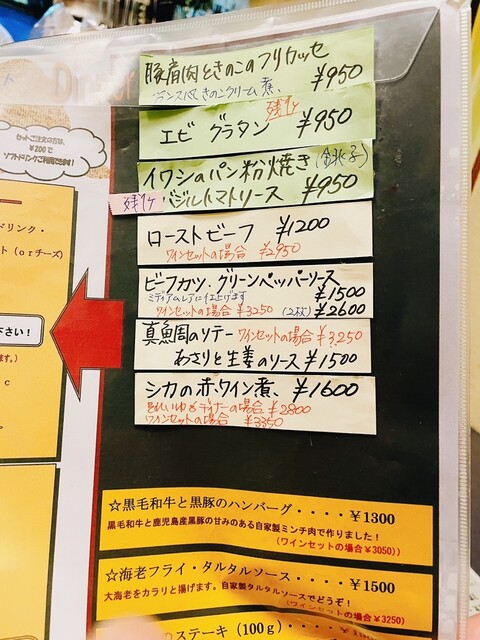 Dinner
豚肩肉ときのこのフリカッセ
きのこクリーム煮、
¥950
残1ヶ
エビ グラタン ¥950
イワシのパン粉焼き(銚子)
残1ヶ
バジルトマトソース ¥950
ローストビーフ ¥1200
ワインセットの場合 ¥2950
ビーフカツ、グリーンペッパーソース
ミディアムレアに仕上げます
¥1500
ワインセットの場合 ¥3250 (2枚) ¥2600
真魚周のソテー ワインセットの場合 ¥3250
あさりと生姜のソース ¥1500
シカの赤ワイン煮、¥1600
ディナーの場合 ¥2800
ワインセットの場合 ¥3350
セットご注文の方は、
¥200で
ソフトドリンクご利用できます!
ドリンク・
ット(orチーズ)
下さい!
ます。)
c
☆黒毛和牛と黒豚のハンバーグ・・・・¥1300
黒毛和牛と鹿児島産黒豚の甘みのある自家製ミンチ肉で作りました!
(ワインセットの場合¥3050))
☆海老フライ・タルタルソース・・・・¥1500
大海老をカラリと揚げます。自家製タルタルソースでどうぞ!
(ワインセットの場合¥3250)
のステーキ(100g)・・・・